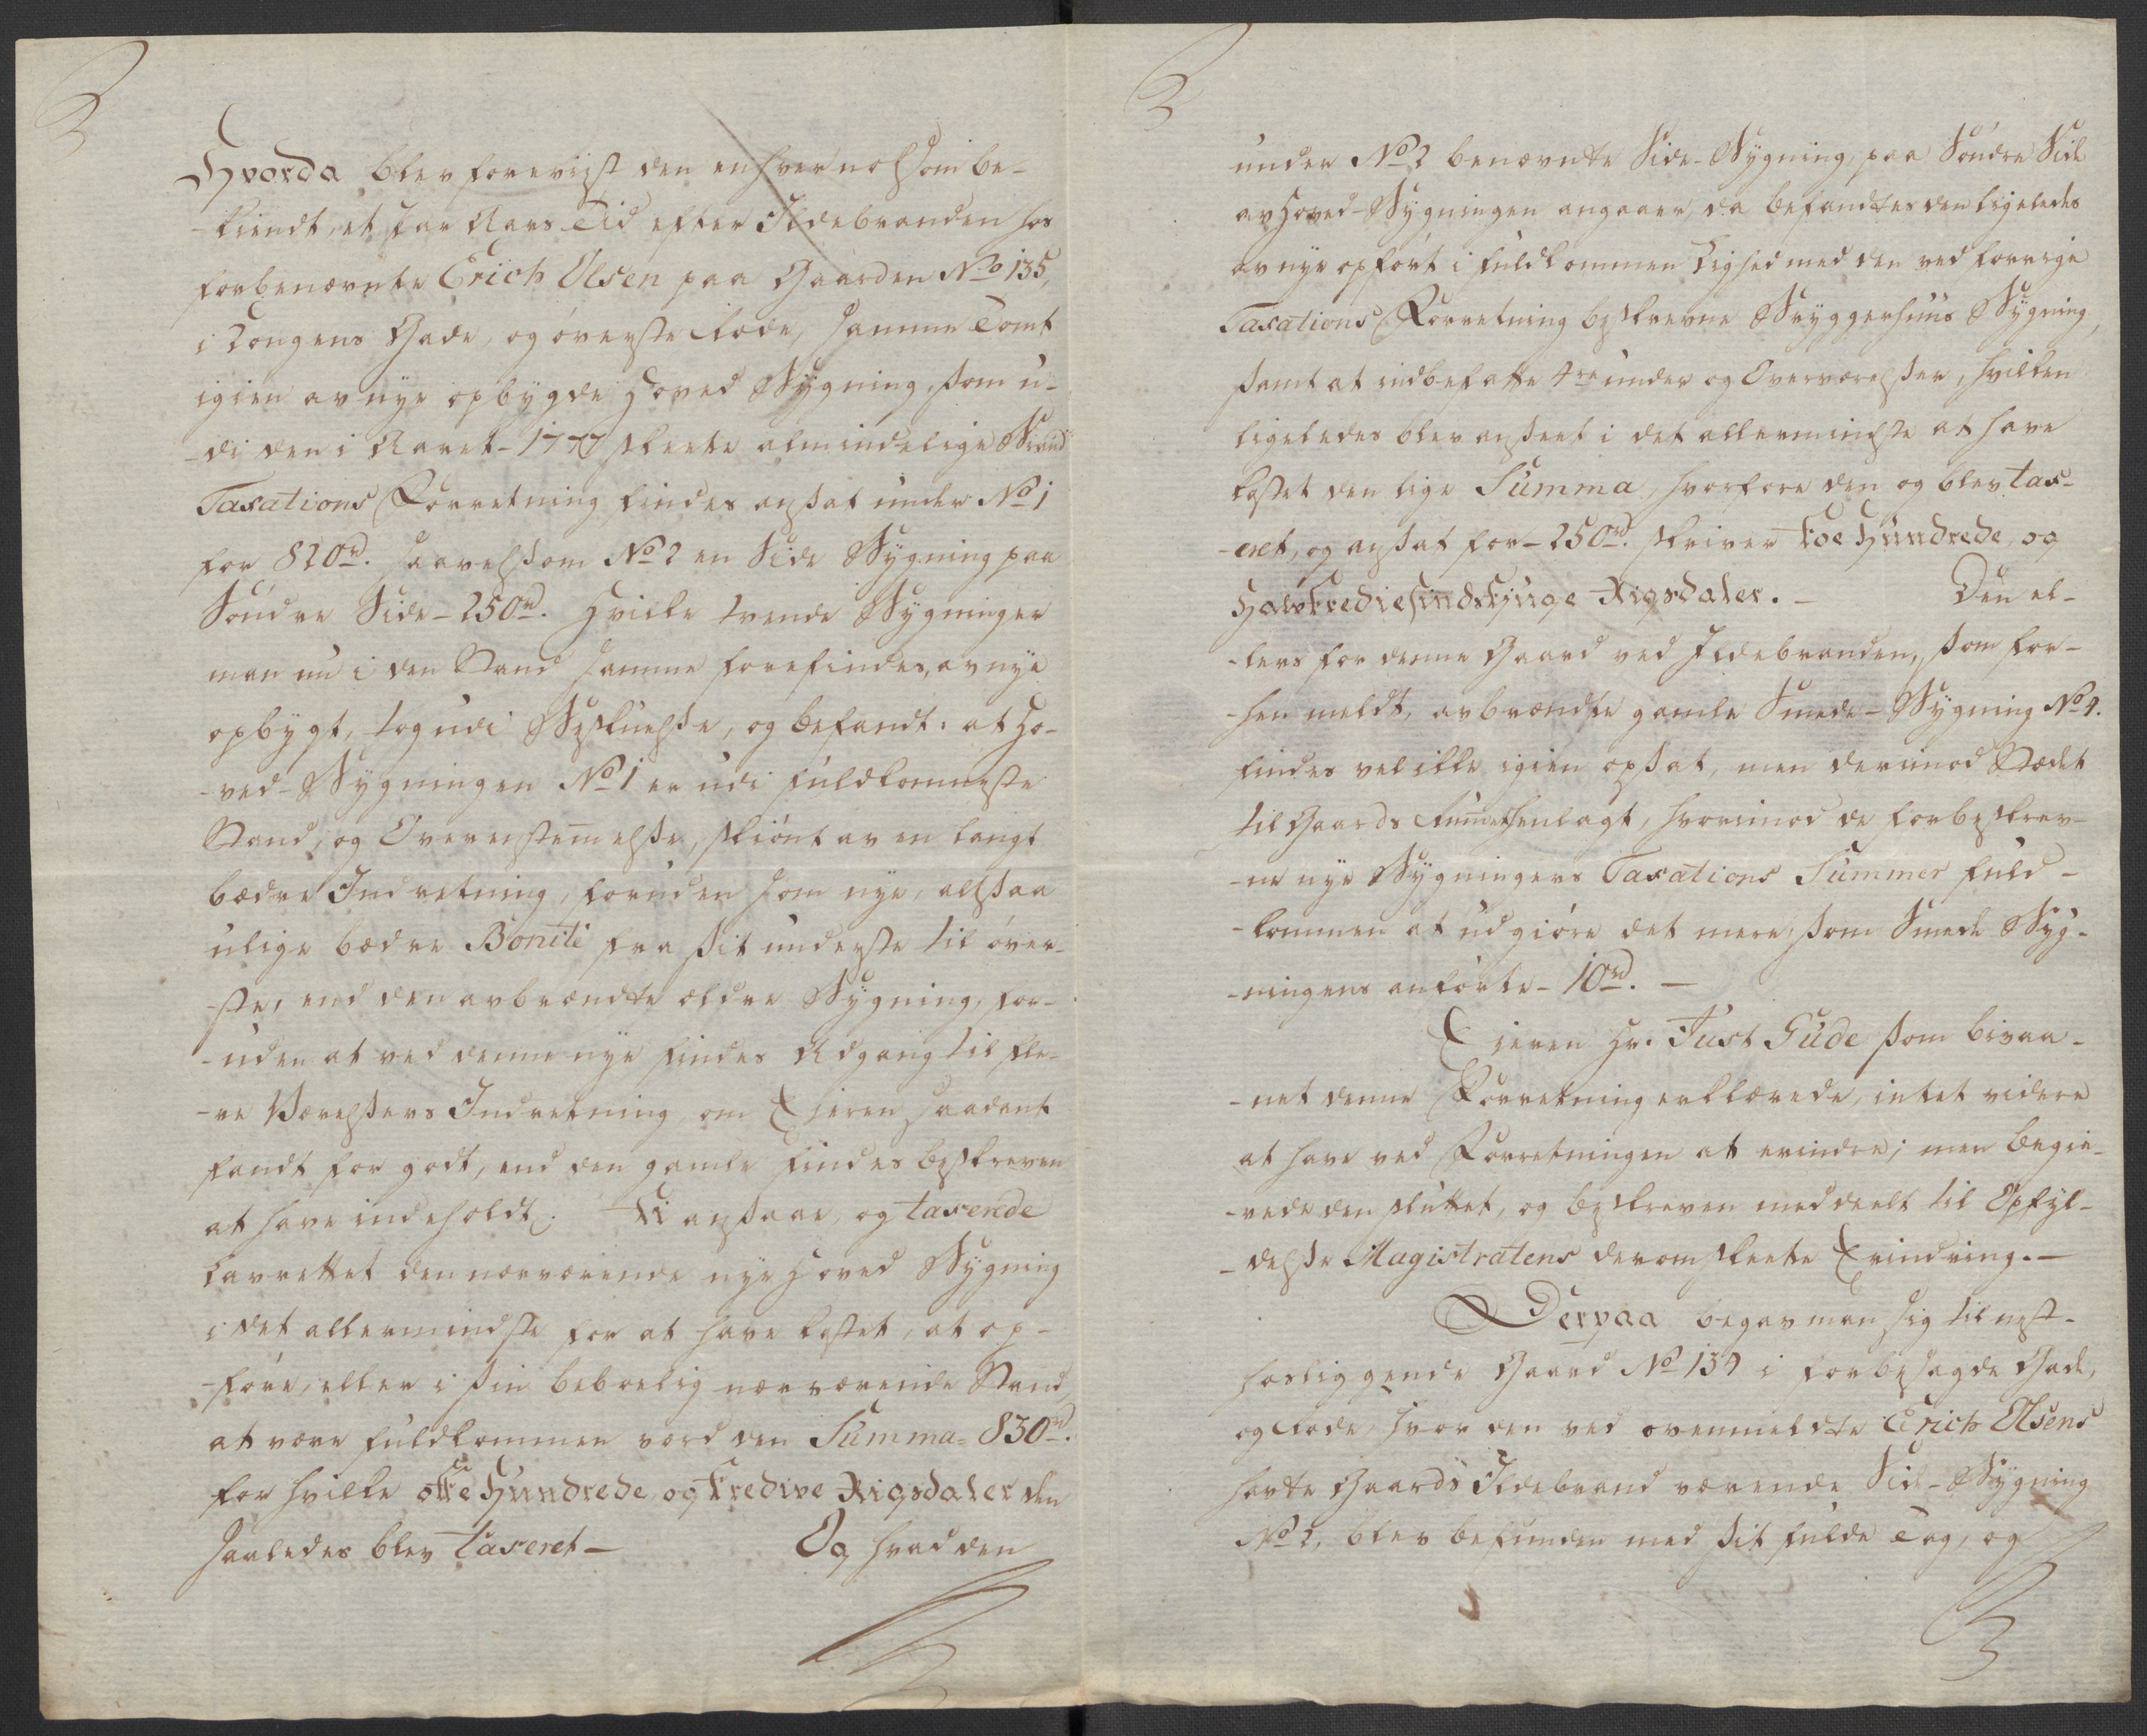 Hvorda blev foreviist den enhver noksom be-
-kiendt, et par Aars Tid efter Ildebranden hos
forbenævnte Erich Olsen paa Gaarden No 135,
i Kongens Gade, og överste Rode, samme Tomt
igien av nye opbygde Hoved Bygning, som u-
-di den i Aaret 1777 skeete almindelige Brand
Taxations Forretning findes ansat under No 1
for 820rd. saavelsom No 2 en Side Bygning paa
Söndre Side - 250rd. Hvilke tvende Bygninger
man nu i den Stand samme forefindes, av nye
opbygt, tog udi Beskuelse, og befandt: at Ho-
-ved-Bygningen No 1 er udi fuldkomneste
Stand, og Overenstemelse, skiönt av en langt
bædre Indretning, foruden som nye, altsaa
ulige bædre Bonité fra sit underste til över-
-ste, end den avbrændte ældre Bygning, for-
-uden at ved denne nye findes Adgang til fle-
-re Værelsers Indretning, om Eieren saadant
fandt for godt, end den gamle findes beskreven
at have indeholdt; Ti ansaae, og taxerede
Lavrettet den nærværende nye Hoved Bygning
i det allermindste for at have kostet, at op-
-före, eller i sin beboelig nærværende Stand,
at være fuldkommen værd den Summa - 830rd.
for hvilke otte Hundrede og Tredive Rigsdaler den
saaledes blev taxeret - Og hvad den
under No 2 benævnte Side-Bygning, paa Söndre Side
av Hoved-Bygningen angaaer, da befandtes den ligeledes
av nye opfört i fuldkommen Lighed med den ved forrige
Taxations Forretning beskrevne Bryggerhuus Bygning,
samt at indbefatte 4re under og Overværelser, hvilken
ligeledes blev anseet i det allermindste at have
kostet den lige Summa, hvorfore den og blev tax-
-eret, og ansat for - 250rd. skriver Toe Hundrede, og
Halvtrediesindstyuge Rigsdaler. - Den el-
-lers for denne Gaard ved Ildebranden, som for-
-hen meldt, avbrændte gamle Smede-Bygning No 4.
findes vel ikke igien opsat, men derimod Stædet
til Gaards Rummet henlagt, hvorimod de forbeskrev-
-ne nye Bygningers Taxations Summer fuld-
-kommen at udgiöre det mere, som Smede Byg-
-ningens anförte - 10rd. -
Eieren Hr. Just Gude som bivaa-
-net denne Forretning erklærede, intet videre
at have ved Forretningen at erindre; men begie-
-rede den sluttet, og beskreven meddeelt til Opfyl-
-delse Magistratens derom skeete Erindring. -
Derpaa begav man sig til nest-
hosliggende Gaard No 134 i forbesagde Gade,
og Rode, hvor den ved ovenmeldte Erich Olsens
havte Gaards Ildebrand værende Side-Bygning
No 2, blev befunden med sit fulde Tag, og